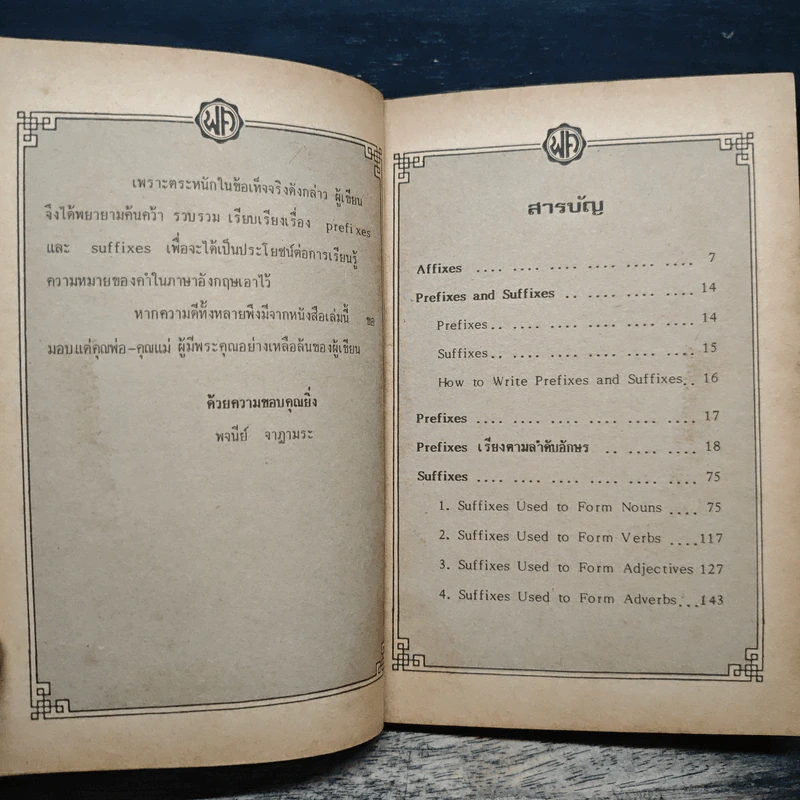 พค
เพราะตระหนักในข้อเท็จจริงดังกล่าว ผู้เขียน
จึงได้พยายามค้นคว้า รวบรวม เรียบเรียงเรื่อง prefixes
และ suffixes เพื่อจะได้เป็นประโยชน์ต่อการเรียนรู้
ความหมายของคำในภาษาอังกฤษเอาไว้
หากความดีทั้งหลายพึงมีจากหนังสือเล่มนี้ ขอ
มอบแด่คุณพ่อ-คุณแม่ ผู้มีพระคุณอย่างเหลือล้นของผู้เขียน
ด้วยความขอบคุณยิ่ง
พจนีย์ จาฏามระ
พค
สารบัญ
Affixes .... .... .... .... .... .... 7
Prefixes and Suffixes .. .... .... .... 14
Prefixes.. .... .... .... .... .... 14
Suffixes.. .... .... .... .... .... 15
How to Write Prefixes and Suffixes.. 16
Prefixes .... .... .... .... .... .... 17
Prefixes เรียงตามลำดับอักษร .. .... .... 18
Suffixes .... .... .... .... .... .... 75
1. Suffixes Used to Form Nouns .... 75
2. Suffixes Used to Form Verbs ....117
3. Suffixes Used to Form Adjectives 127
4. Suffixes Used to Form Adverbs....143